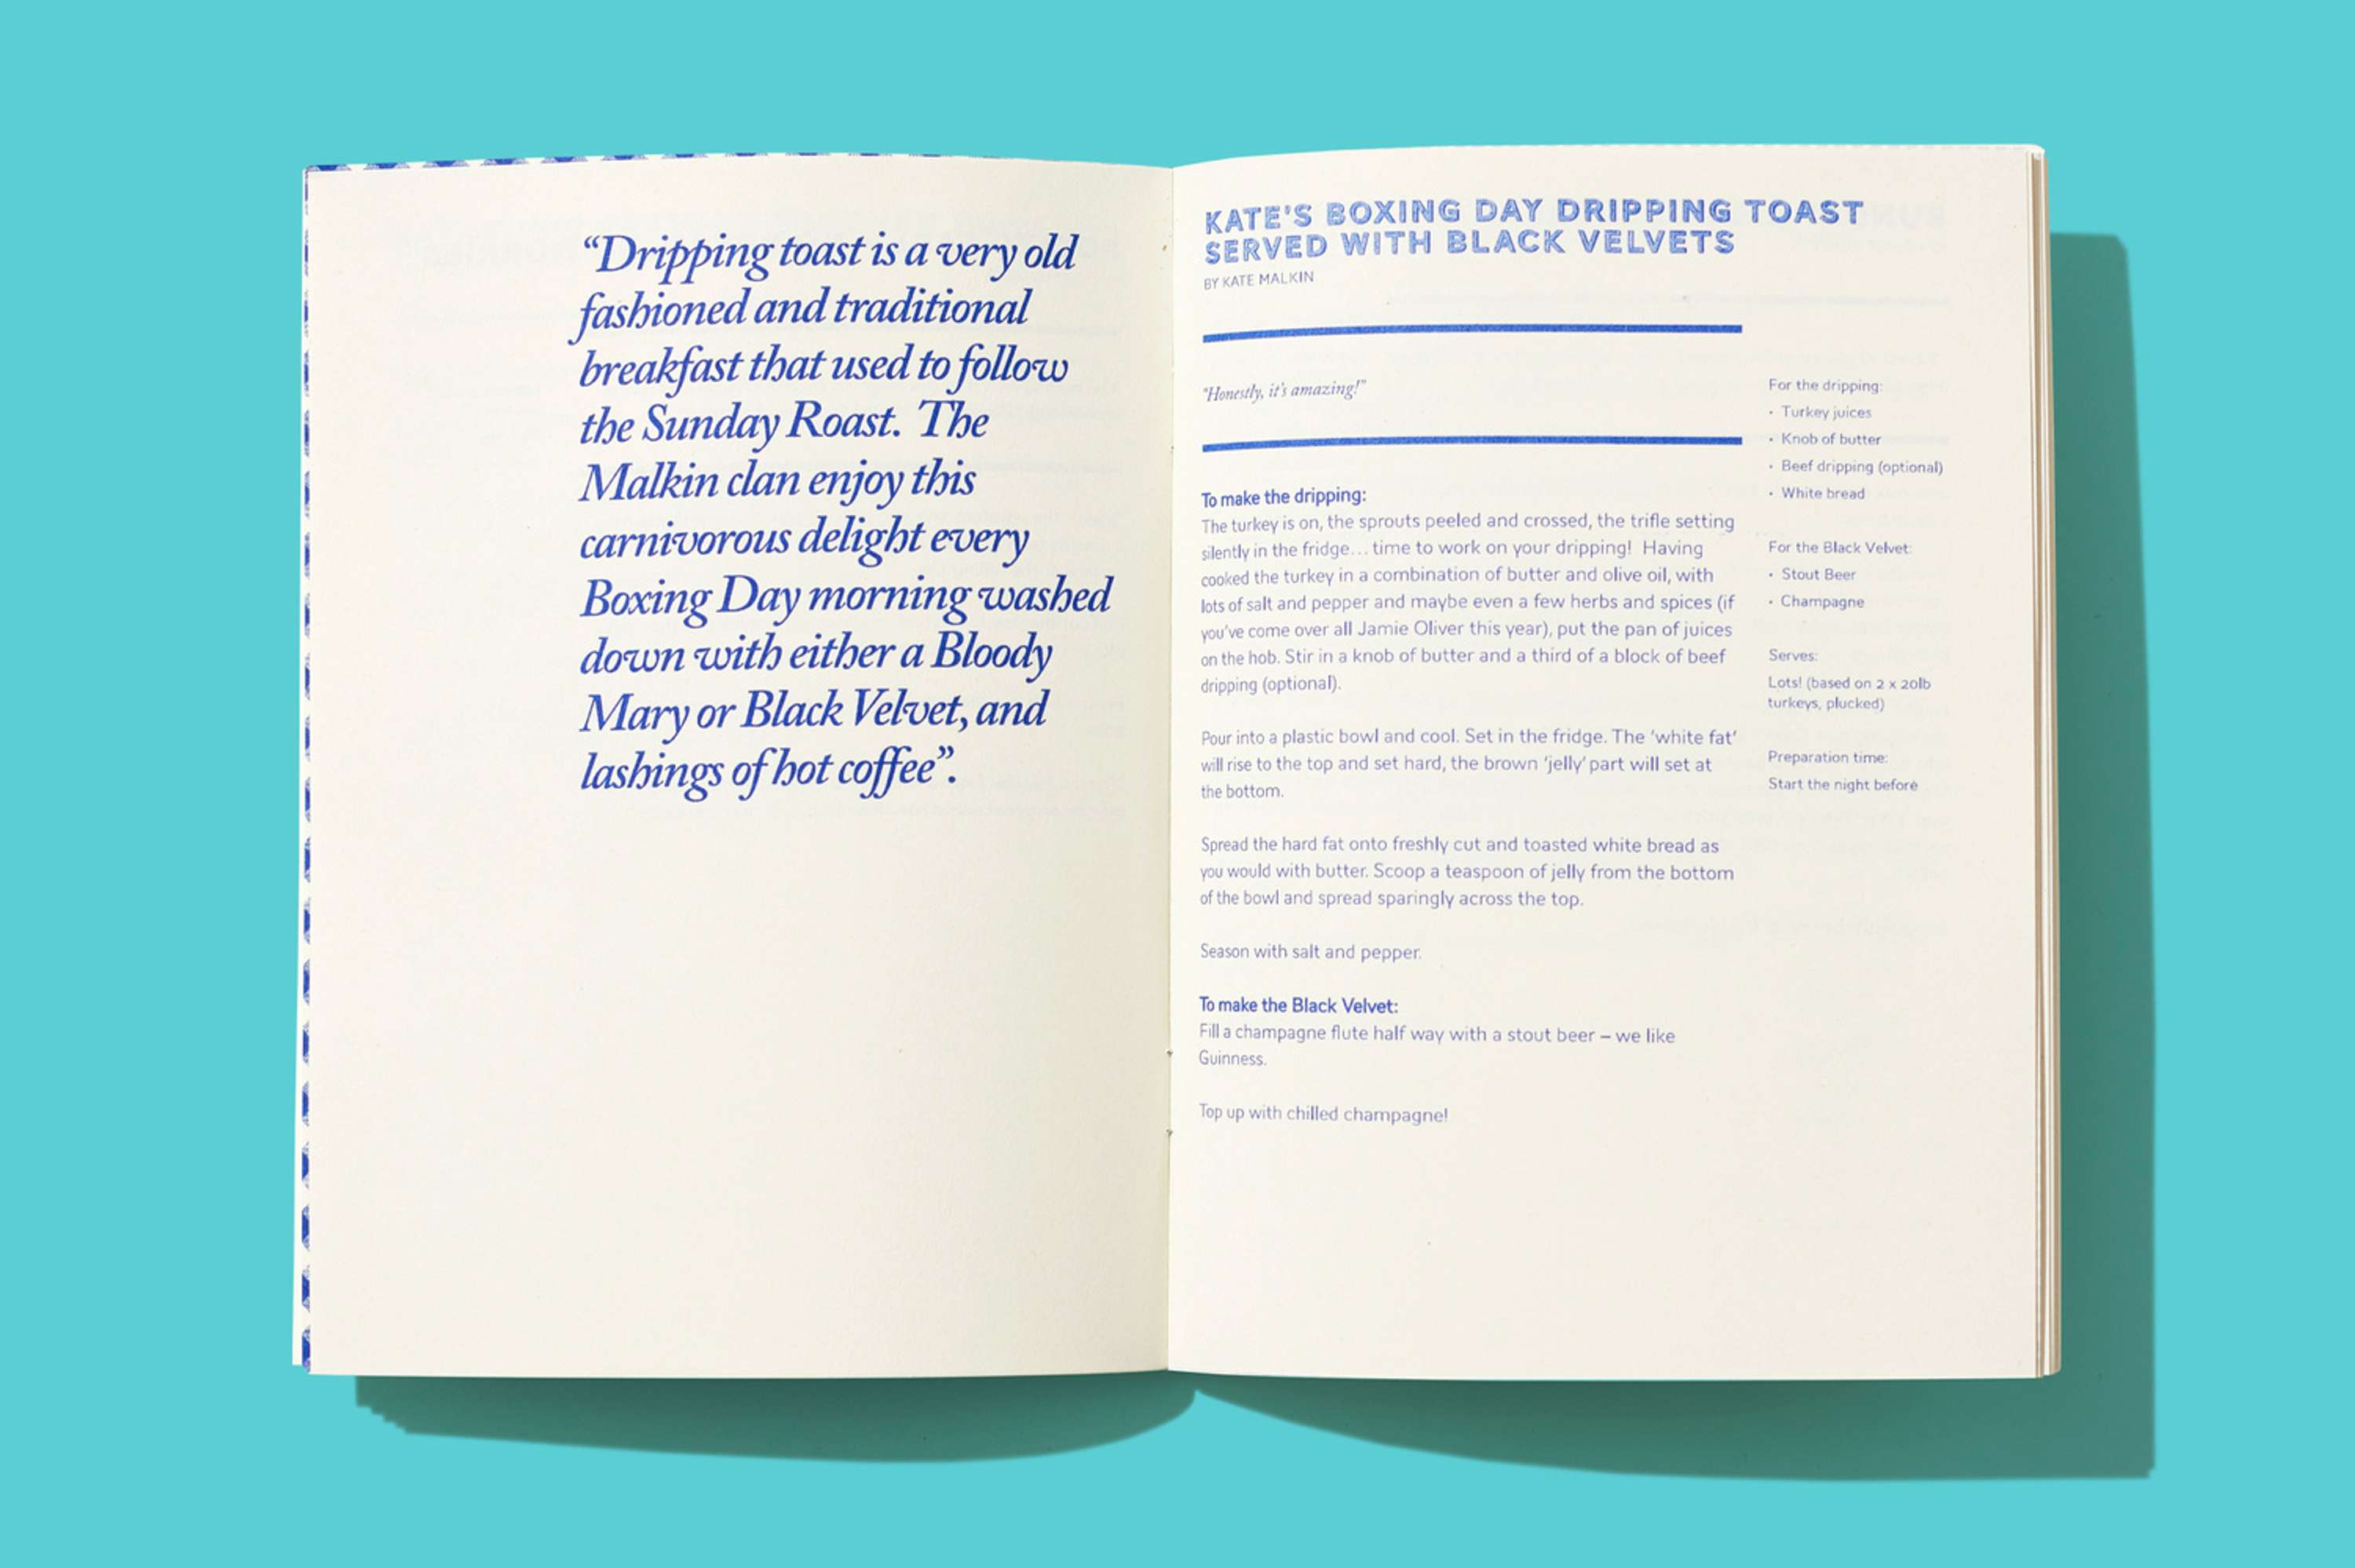 “Dripping toast is a very old
fashioned and traditional
breakfast that used to follow
the Sunday Roast. The
Malkin clan enjoy this
carnivorous delight every
Boxing Day morning washed
down with either a Bloody
Mary or Black Velvet, and
lashings of hot coffee”.
KATE'S BOXING DAY DRIPPING TOAST
SERVED WITH BLACK VELVETS
BY KATE MALKIN
“Honestly, it's amazing!”
To make the dripping:
The turkey is on, the sprouts peeled and crossed, the trifle setting
silently in the fridge... time to work on your dripping! Having
cooked the turkey in a combination of butter and olive oil, with
lots of salt and pepper and maybe even a few herbs and spices (if
you've come over all Jamie Oliver this year), put the pan of juices
on the hob. Stir in a knob of butter and a third of a block of beef
dripping (optional).
Pour into a plastic bowl and cool. Set in the fridge. The ‘white fat’
will rise to the top and set hard, the brown ‘jelly’ part will set at
the bottom.
Spread the hard fat onto freshly cut and toasted white bread as
you would with butter. Scoop a teaspoon of jelly from the bottom
of the bowl and spread sparingly across the top.
Season with salt and pepper.
To make the Black Velvet:
Fill a champagne flute half way with a stout beer – we like
Guinness.
Top up with chilled champagne!
For the dripping:
• Turkey juices
• Knob of butter
• Beef dripping (optional)
• White bread
For the Black Velvet:
• Stout Beer
• Champagne
Serves:
Lots! (based on 2 x 20lb
turkeys, plucked)
Preparation time:
Start the night before